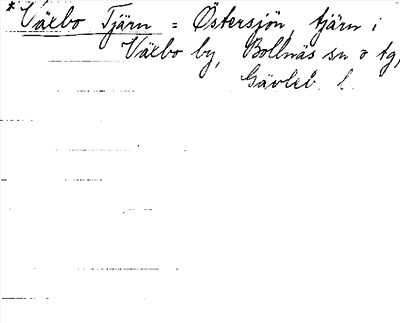 *Växbo Tjärn = Östersjön, tjärn i
Växbo by, Bollnäs sn o tg,
Gävleb. l.